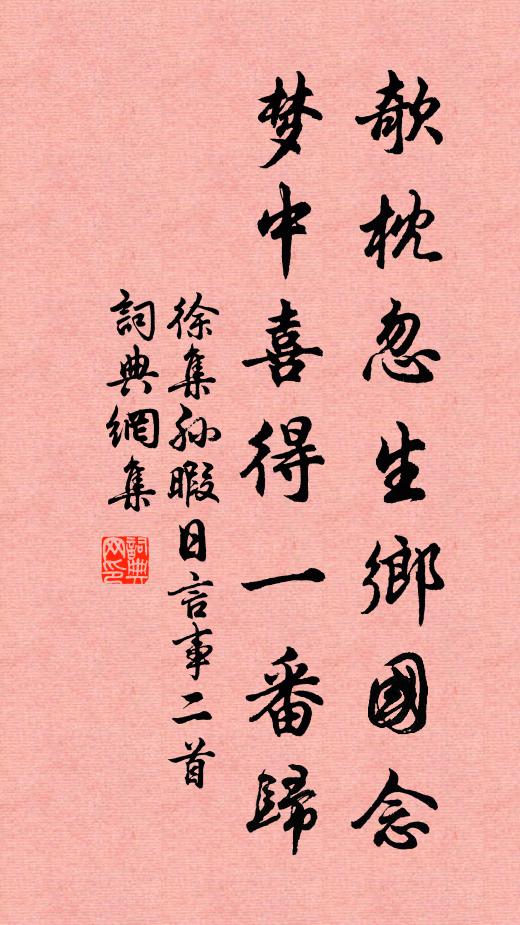 欹枕忽生鄉國念
梦中喜得一番歸
徐集孫暇日言事二首
詞典網集
詞典网印